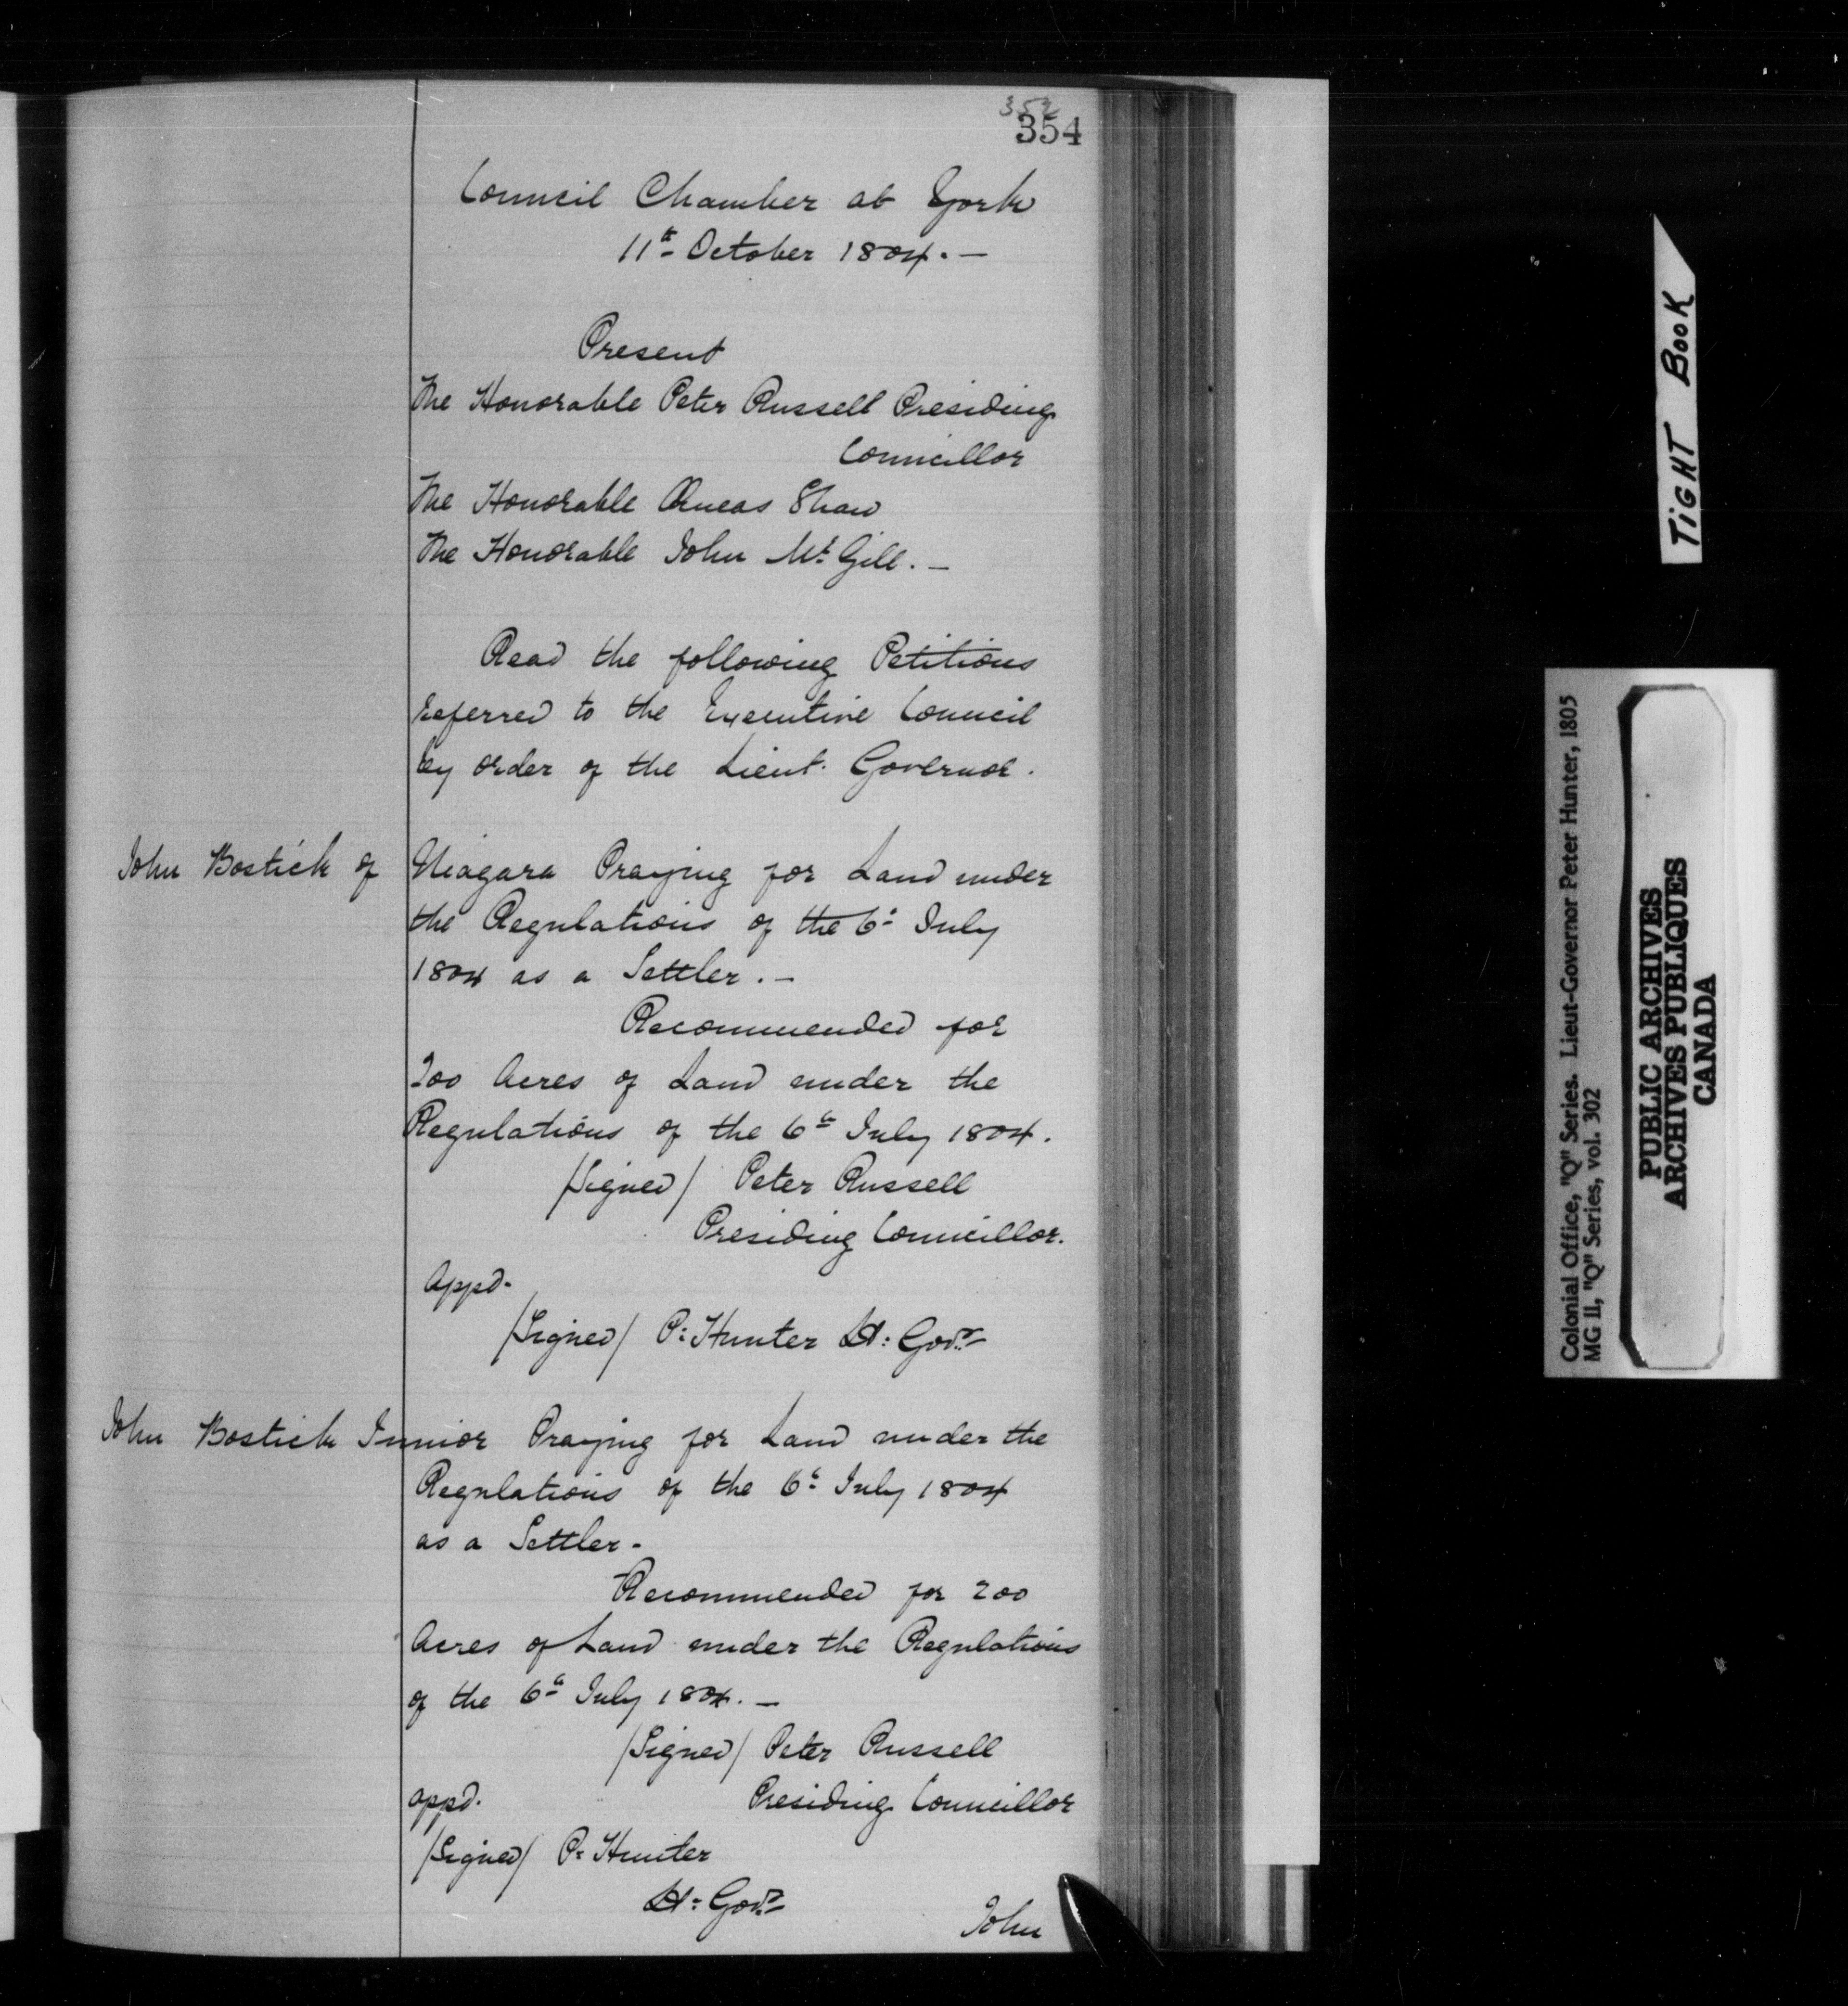 352
354
Council Chamber at York
11th October 1804. —
Present
The Honorable Peter Russell Presiding
Councillor
The Honorable Æneas Shaw
The Honorable John McGill. —
Read the following Petitions
referred to the Executive Council
by order of the Lieut. Governor.
John Bostick of Niagara Praying for Land under
the Regulations of the 6th July
1804 as a Settler. —
Recommended for
200 Acres of Land under the
Regulations of the 6th July 1804.
/Signed/ Peter Russell
Presiding Councillor.
Appd.
/Signed/ P: Hunter Lt: Govr
John Bostick Junior Praying for Land under the
Regulations of the 6th July 1804
as a Settler -
Recommended for 200
Acres of Land under the Regulations
of the 6th July 1804. —
/Signed/ Peter Russell
appd. Presiding Councillor
/Signed/ P: Hunter
Lt: Govr
John
TiGHT BOOK
Colonial Office, "Q" Series. Lieut-Governor Peter Hunter, 1805
MG II, "Q" Series, vol. 302
PUBLIC ARCHIVES
ARCHIVES PUBLIQUES
CANADA